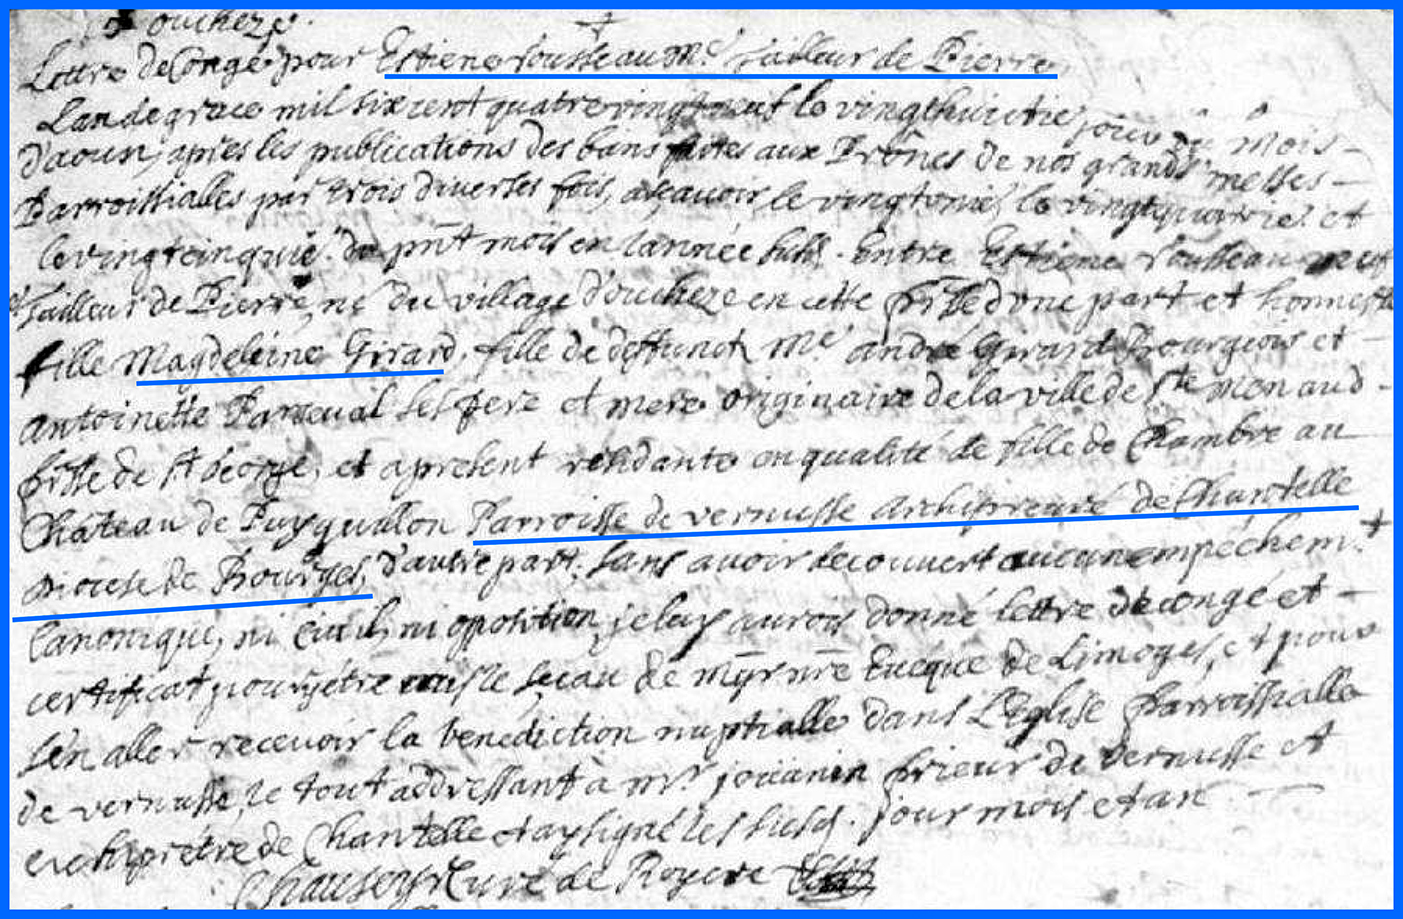 oucheze.
Lettre de Congé pour Estiene rousseau me. tailleur de Pierre
Lan de grace mil six cent quatre vingt neuf le vingthuictie jour du Mois
d'aoust, apres les publications des bans faites aux Prônes de nos grands messes
Parroissialles par trois diverses fois, asçavoir le vingtunie, le vingtquatrie. et
le vingtcinquié. du pnt mois en lannée susd. Entre Estiene rousseau
tailleur de Pierre, né du village d'oucheze en cette prsse d'une part et honneste
fille Magdeleine Girard, fille de deffunct Me andré Girard Bourgeois et
Antoinette Parceval ses pere et mere originaire de la ville de st monaud
prsse de st George, et apresent residante en qualité de fille de Chambre au
Château de Puyguallon Parroisse de vernusse archipreveré de Chantelle
diocese de Bourges, d'autre part. sans avoir decouvert aucun empéchem.t
Canonique, ni Civil, ni oposition, je luy aurois donné lettre de congé et
certificat pour jêtre mis le sceau de mgr nre Eveque de Limoges, et pour
s'en aller recevoir la benediction nuptialle dans L'Eglise Parroissialle
de vernusse, le tout addressant à mr. jouanin prieur de vernusse et
archiprétre de Chantelle et ay signé les susd. jour mois et an
Curé de Royere